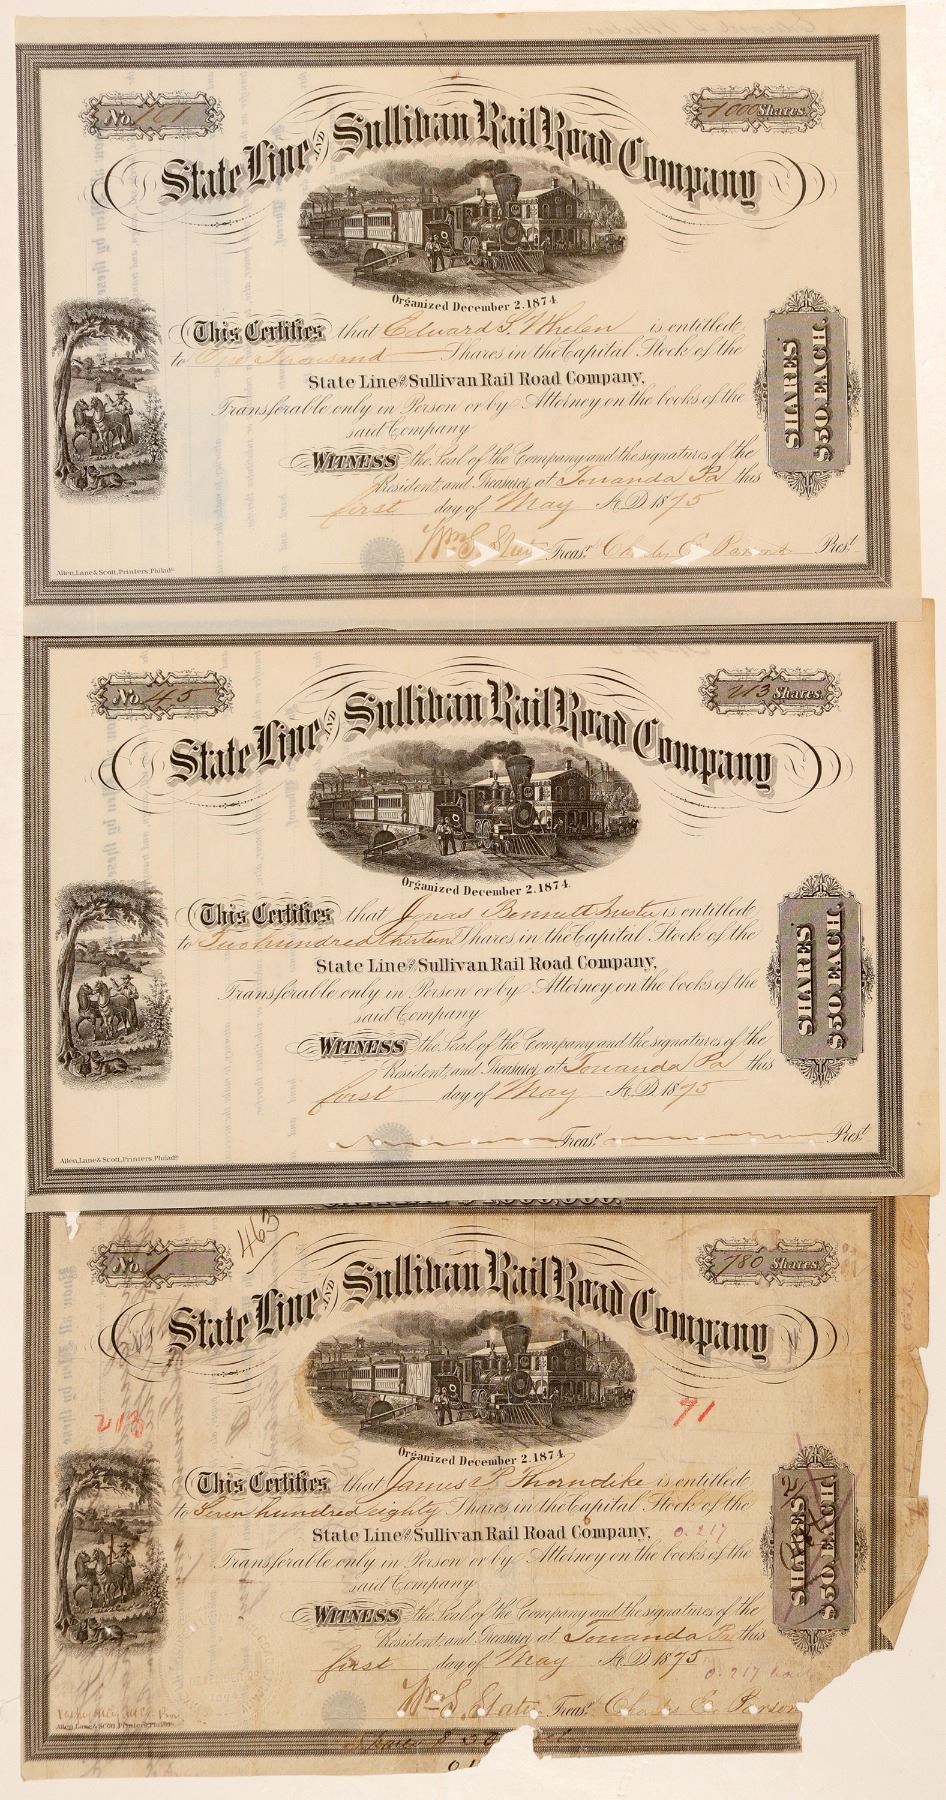 No. 161
1000 Shares.
State Line AND Sullivan Rail Road Company
Organized December 2. 1874.
This Certifies that Edward S. Whelen is entitled
to One Thousand Shares in the Capital Stock of the
State Line and Sullivan Rail Road Company,
Transferable only in Person or by Attorney on the books of the
said Company
WITNESS the Seal of the Company and the signatures of the
President and Treasurer, at Towanda Pa this
first day of May A.D. 1875
Treas. Pres.t
SHARES $50. EACH.
Allen, Lane & Scott, Printers, Philada.
No. 45
213 Shares.
State Line AND Sullivan Rail Road Company
Organized December 2. 1874.
This Certifies that Jonas Bennett Trustee is entitled
to Two hundred thirteen Shares in the Capital Stock of the
State Line and Sullivan Rail Road Company,
Transferable only in Person or by Attorney on the books of the
said Company
WITNESS the Seal of the Company and the signatures of the
President and Treasurer, at Towanda Pa this
first day of May A.D. 1875
Treas. Pres.t
SHARES $50. EACH.
Allen, Lane & Scott, Printers, Philada.
463
No. 1
780 Shares.
State Line AND Sullivan Rail Road Company
213
91
Organized December 2. 1874.
This Certifies that James P. Thorndike is entitled
to Seven hundred eighty Shares in the Capital Stock of the
State Line and Sullivan Rail Road Company,
0.217
Transferable only in Person or by Attorney on the books of the
said Company
WITNESS the Seal of the Company and the signatures of the
President and Treasurer, at Towanda Pa this
first day of May A.D. 1875
0.217
Wm. S. Treas. Charles
SHARES $50. EACH.
Allen, Lane & Scott, Printers, Philada.